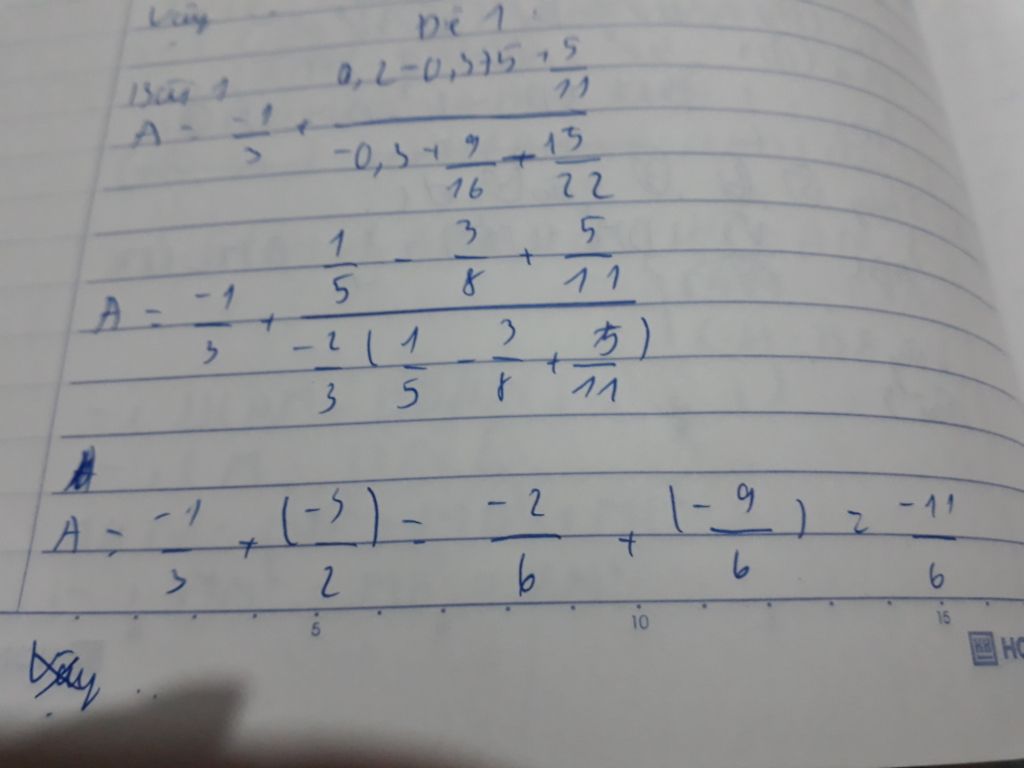 Vậy
Đề 1
Bài 1
A = -1/3 + (0,2 - 0,375 + 5/11)/(-0,3 + 9/16 + 15/22)
A = -1/3 + (1/5 - 3/8 + 5/11)/(-2/3 (1/5 - 3/8 + 5/11))
A = -1/3 + (-3/2) = -2/6 + (-9/6) = -11/6
5 10 15